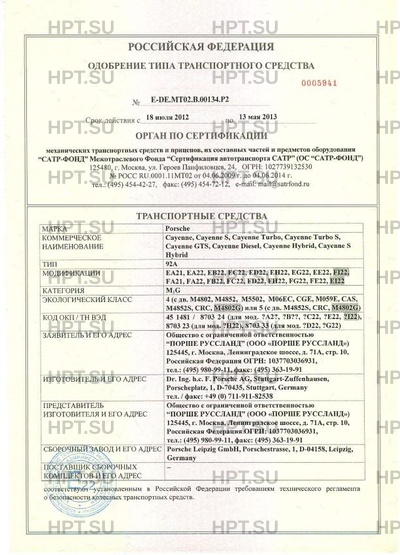 HPT.SU HPT.SU HPT.SU
РОССИЙСКАЯ ФЕДЕРАЦИЯ
ОДОБРЕНИЕ ТИПА ТРАНСПОРТНОГО СРЕДСТВА
0005941
№ E-DE.MT02.B.00134.P2
Срок действия с 18 июля 2012 по 13 мая 2013
ОРГАН ПО СЕРТИФИКАЦИИ
механических транспортных средств и прицепов, их составных частей и предметов оборудования
"САТР-ФОНД" Межотраслевого Фонда "Сертификация автотранспорта САТР" (ОС "САТР-ФОНД")
125480, г. Москва, ул. Героев Панфиловцев, 24, ОГРН: 1027739132530
№ РОСС RU.0001.11МТ02 от 04.06.2009 г. до 04.06.2014 г.
тел.: (495) 454-42-27, факс: (495) 454-72-12, e-mail: mail@satrfond.ru
ТРАНСПОРТНЫЕ СРЕДСТВА
МАРКА Porsche
КОММЕРЧЕСКОЕ НАИМЕНОВАНИЕ Cayenne, Cayenne S, Cayenne Turbo, Cayenne Turbo S,
Cayenne GTS, Cayenne Diesel, Cayenne Hybrid, Cayenne S
Hybrid
ТИП 92A
МОДИФИКАЦИИ EA21, EA22, EB22, EC22, ED22, EH22, EG22, EE22, EI22,
FA21, FA22, FB22, FC22, FD22, FH22, FG22, FE22,
КАТЕГОРИЯ M1G
ЭКОЛОГИЧЕСКИЙ КЛАСС 4 (с дв. M4802, M4852, M5502, M06EC, CGE, M059E, CAS,
M4852S, CRC, M4802G) или 5 (с дв. M4852S, CRC, M4802G)
КОД ОКП / ТН ВЭД 45 1481 / 8703 24 (для мод. ?A2?, ?B??, ?C22, ?E22, ?I22),
8703 23 (для мод. ?H22), 8703 33 (для мод. ?D22, ?G22)
ЗАЯВИТЕЛЬ И ЕГО АДРЕС Общество с ограниченной ответственностью
"ПОРШЕ РУССЛАНД" (ООО «ПОРШЕ РУССЛАНД»)
125445, г. Москва, Ленинградское шоссе, д. 71А, стр. 10,
Российская Федерация ОГРН: 1037703036931,
тел.: (495) 980-99-11, факс: (495) 363-19-91
ИЗГОТОВИТЕЛЬ И ЕГО АДРЕС Dr. Ing. h.c. F. Porsche AG, Stuttgart-Zuffenhausen,
Porscheplatz, 1, D-70435, Stuttgart, Germany
тел. / факс: +49 (0) 711-911-82538
ПРЕДСТАВИТЕЛЬ ИЗГОТОВИТЕЛЯ И ЕГО АДРЕС Общество с ограниченной ответственностью
"ПОРШЕ РУССЛАНД" (ООО «ПОРШЕ РУССЛАНД»)
125445, г. Москва, Ленинградское шоссе, д. 71А, стр. 10,
Российская Федерация ОГРН: 1037703036931,
тел.: (495) 980-99-11, факс: (495) 363-19-91
СБОРОЧНЫЙ ЗАВОД И ЕГО АДРЕС Porsche Leipzig GmbH, Porschestrasse, 1, D-04158, Leipzig,
Germany
ПОСТАВЩИК СБОРОЧНЫХ КОМПЛЕКТОВ И ЕГО АДРЕС –
соответствуют установленным в Российской Федерации требованиям технического регламента
о безопасности колесных транспортных средств.
HPT.SU HPT.SU HPT.SU